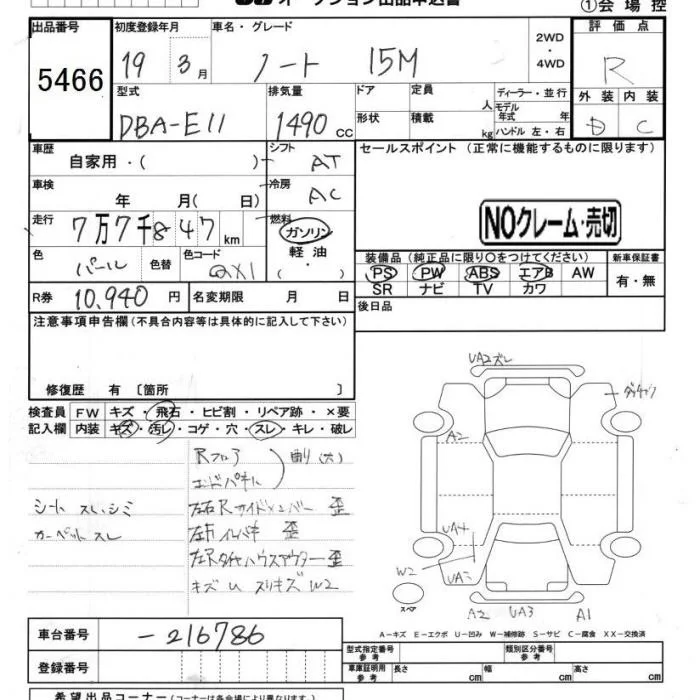 オークション出品申込書
①会場控
出品番号 初度登録年月 車名・グレード 2WD・4WD 評価点
5466 19 3月 ノート 15M R
型式 排気量 ドア 定員 人 ディーラー・並行 外装 内装
DBA-E11 1490 CC 形状 積載 kg モデル年式 年 ハンドル 左・右 D C
車歴 自家用・( ) シフト AT セールスポイント (正常に機能するものに限ります)
車検 年 月( 日) 冷房 AC
走行 7万7千847km 燃料 ガソリン・軽油・( )
NOクレーム・売切
色 パール 色替 色コード QX1
装備品 (純正品に限り○をつけてください) 新車保証書
PS PW ABS エアB AW 有・無
SR ナビ TV カワ
R券 10,940円 名変期限 月 日
後日品
注意事項申告欄(不具合内容等は具体的に記入して下さい)
修復歴 有〔箇所 〕
検査員 FW キズ・飛石・ヒビ割・リペア跡・×要
記入欄 内装 キズ・汚レ・コゲ・穴・スレ・キレ・破レ
Rフロア
エンドパネル 曲り(大)
シート スレ、シミ 左右Rサイドメンバー 歪
カーペット スレ 左右インパネ 歪
左Rタイヤハウスアウター 歪
キズ U スリキズ W2
UA2ズレ
A2
UA4
W2
UA3
スペア
A2 UA3 A1
A―キズ E―エクボ U―凹み W―補修跡 S―サビ C―腐食 XX―交換済
車台番号 -216786
型式指定番号 参考 類別区分番号 参考
登録番号
車庫証明用 参考 長さ cm 幅 cm 高さ cm
希望出品コーナー(コーナーは各会場により異なります)